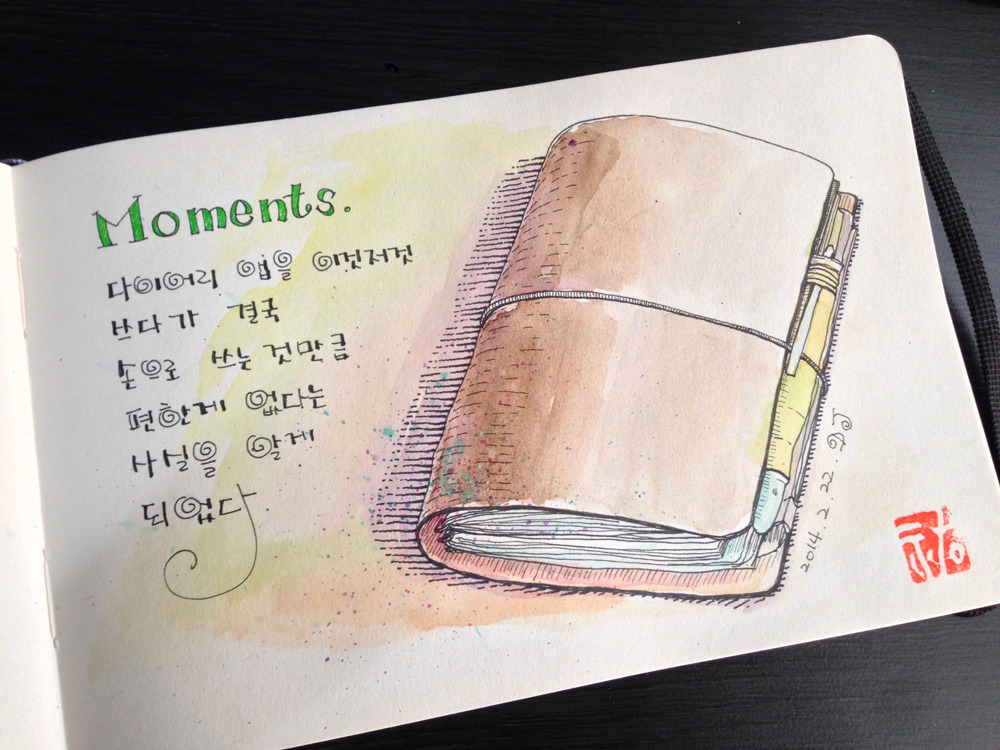 Moments.
다이어리 앱을 이것저것
쓰다가 결국
손으로 쓰는 것만큼
편한게 없다는
사실을 알게
되었다
2014. 2. 22